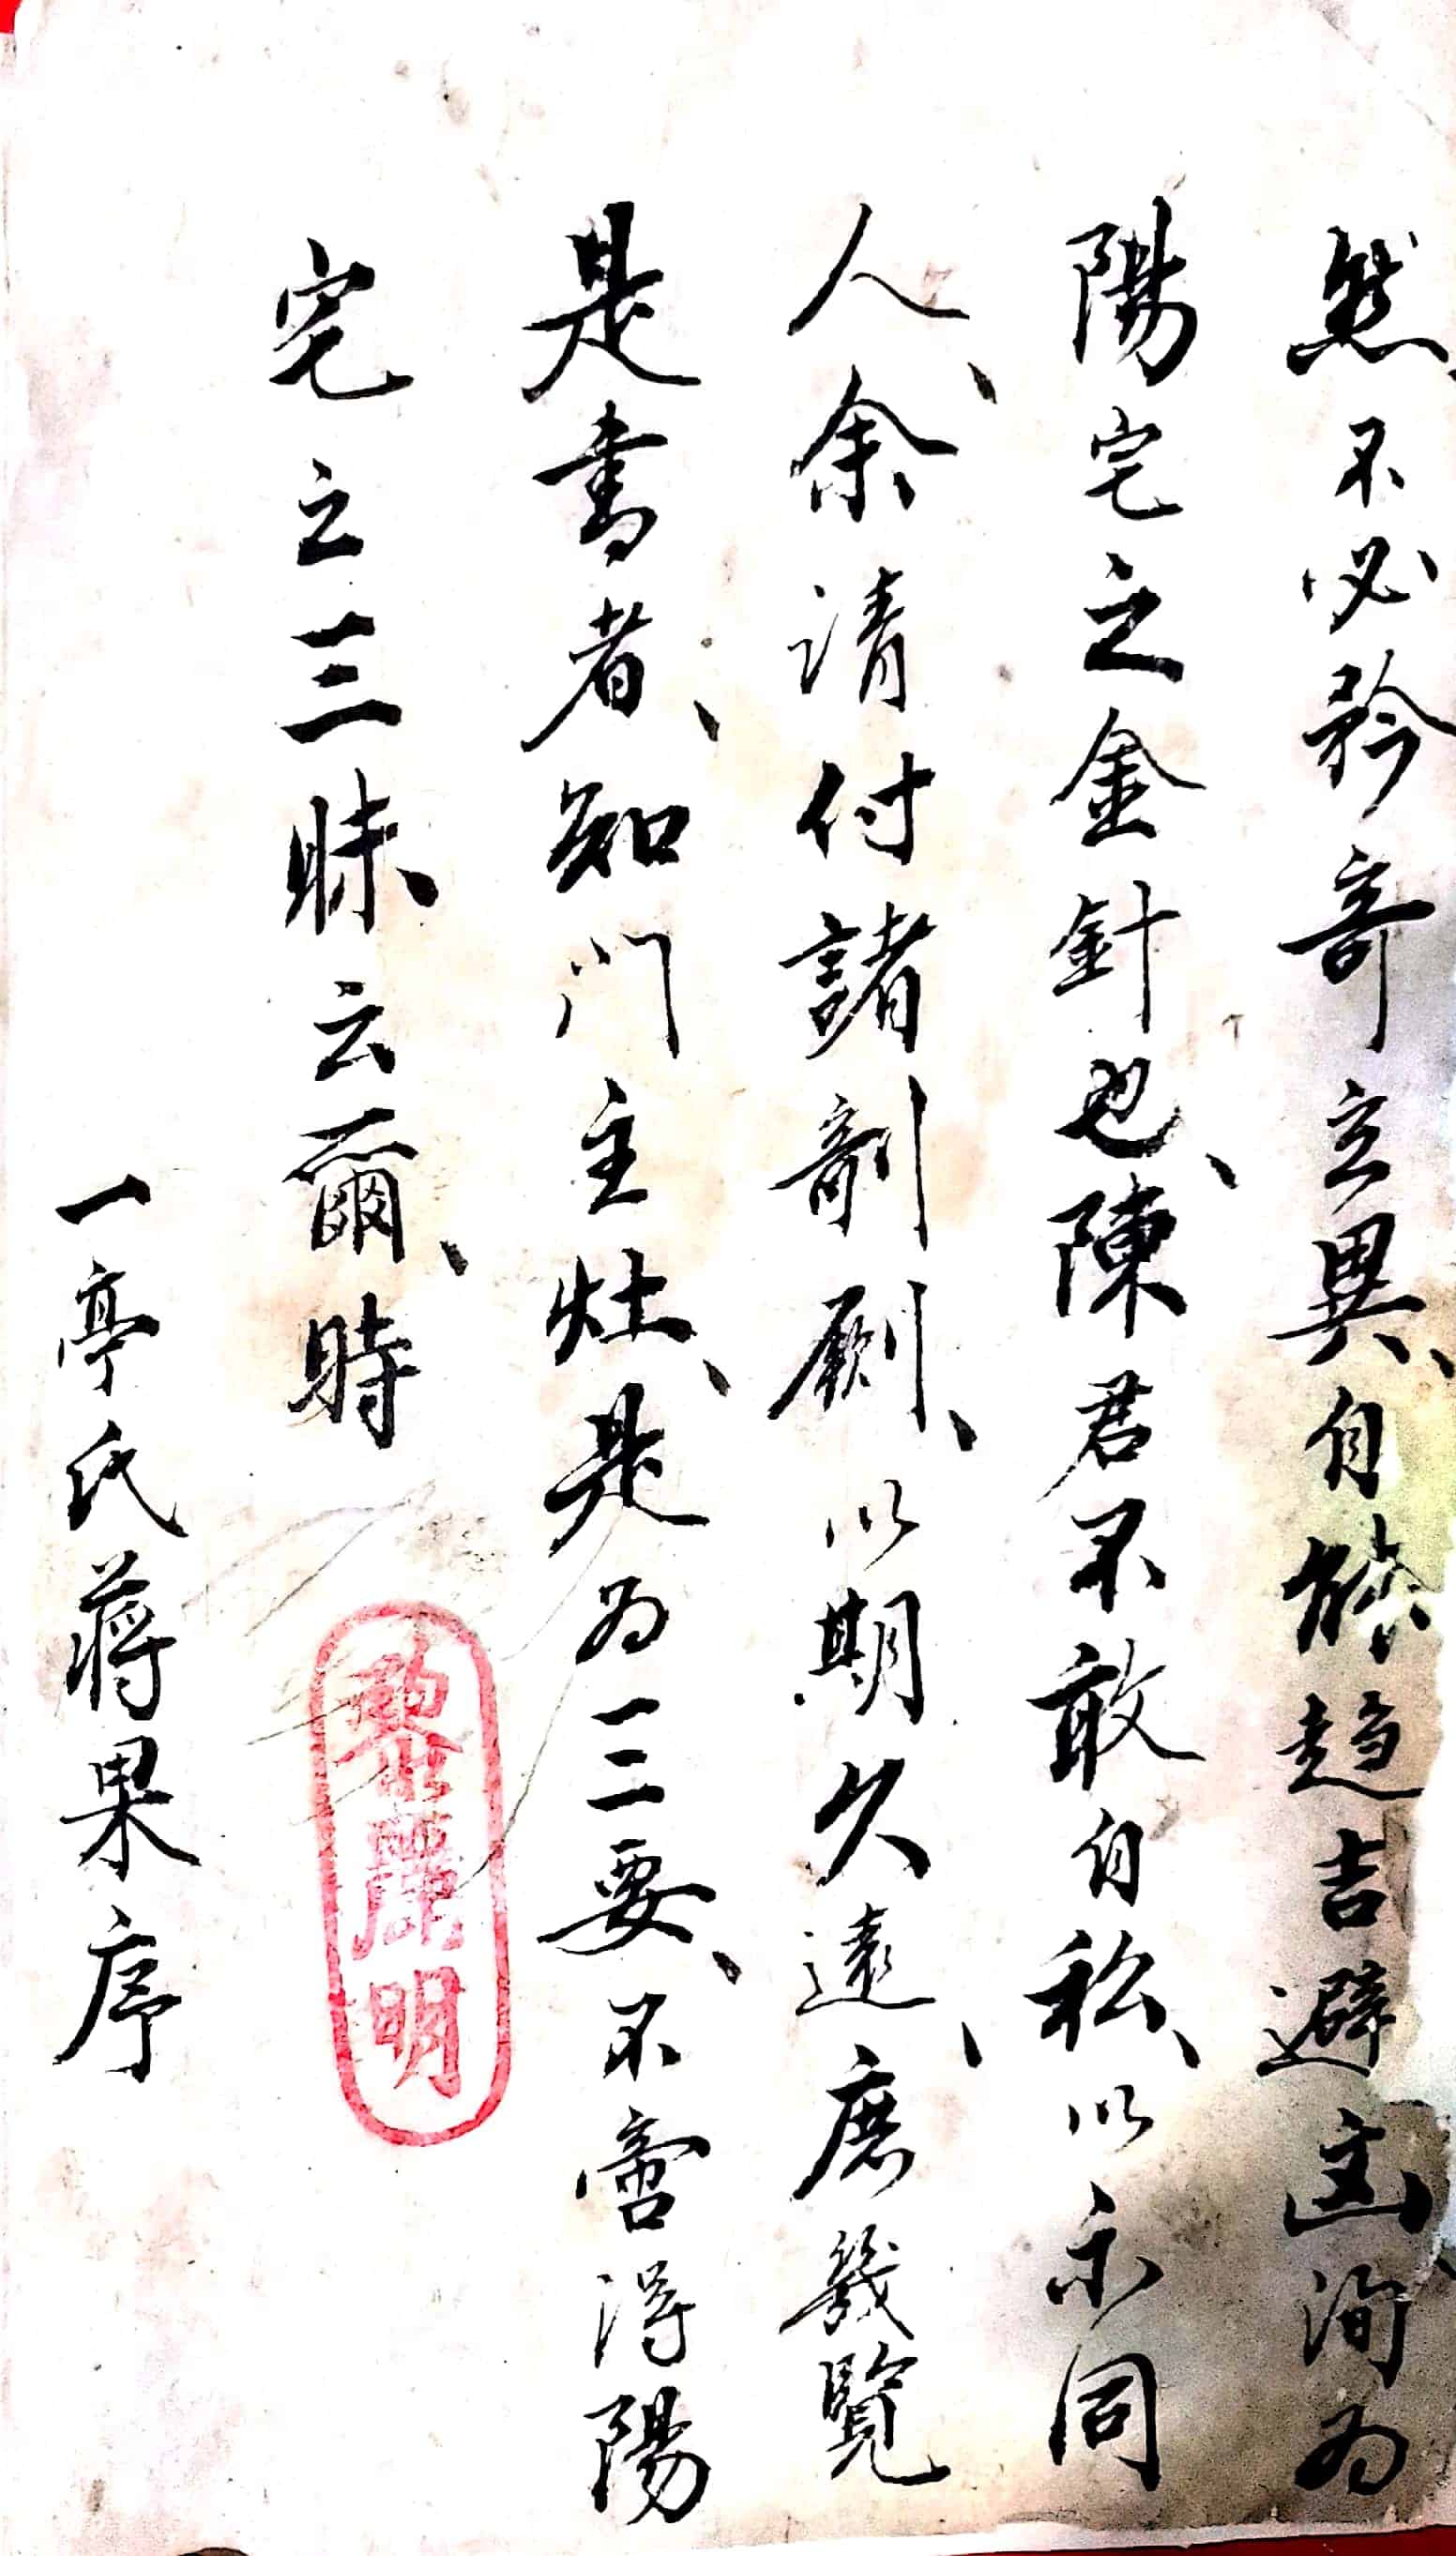 然、不必矜奇立異、自能趨吉避凶、洵为
陽宅之金針也、陳君不敢自私、以示同
人、余請付諸剞劂、以期久遠、庶幾覽
是書者、知門主灶、是为三要、不啻得陽
宅之三昧云爾、時
一亭氏蔣果序
黎麗明